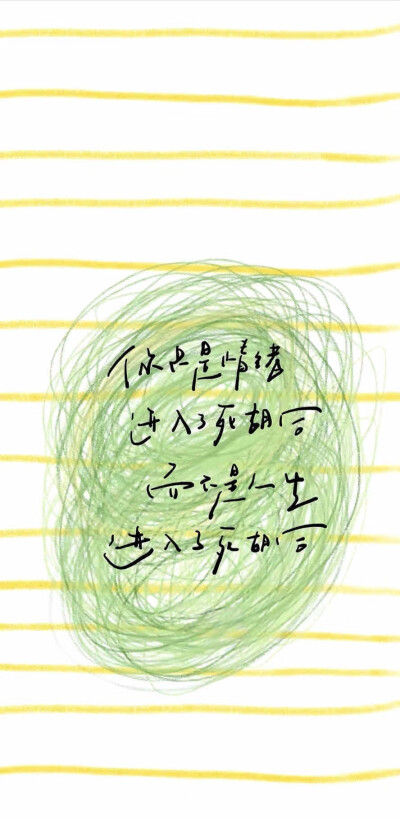 你只是情绪
进入了死胡同
而不是人生
进入了死胡同